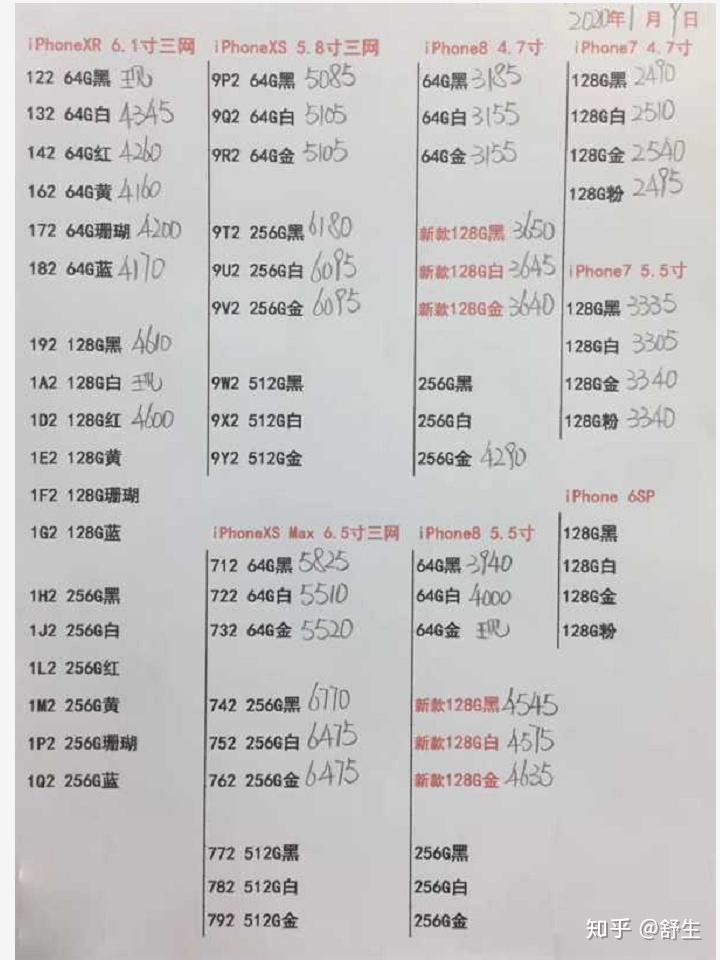 2020年1月9日
iPhoneXR 6.1寸三网
122 64G黑 现
132 64G白 4345
142 64G红 4260
162 64G黄 4160
172 64G珊瑚 4200
182 64G蓝 4170
192 128G黑 4610
1A2 128G白 现
1D2 128G红 4600
1E2 128G黄
1F2 128G珊瑚
1G2 128G蓝
1H2 256G黑
1J2 256G白
1L2 256G红
1M2 256G黄
1P2 256G珊瑚
1Q2 256G蓝
iPhoneXS 5.8寸三网
9P2 64G黑 5085
9Q2 64G白 5105
9R2 64G金 5105
9T2 256G黑 6180
9U2 256G白 6095
9V2 256G金 6095
9W2 512G黑
9X2 512G白
9Y2 512G金
iPhoneXS Max 6.5寸三网
712 64G黑 5825
722 64G白 5510
732 64G金 5520
742 256G黑 6770
752 256G白 6475
762 256G金 6475
772 512G黑
782 512G白
792 512G金
iPhone8 4.7寸
64G黑 3185
64G白 3155
64G金 3155
新款128G黑 3650
新款128G白 3645
新款128G金 3640
256G黑
256G白
256G金 4290
iPhone8 5.5寸
64G黑 3940
64G白 4000
64G金 现
新款128G黑 4545
新款128G白 4575
新款128G金 4635
256G黑
256G白
256G金
iPhone7 4.7寸
128G黑 2490
128G白 2510
128G金 2540
128G粉 2495
iPhone7 5.5寸
128G黑 3335
128G白 3305
128G金 3340
128G粉 3340
iPhone 6SP
128G黑
128G白
128G金
128G粉
知乎 @舒生